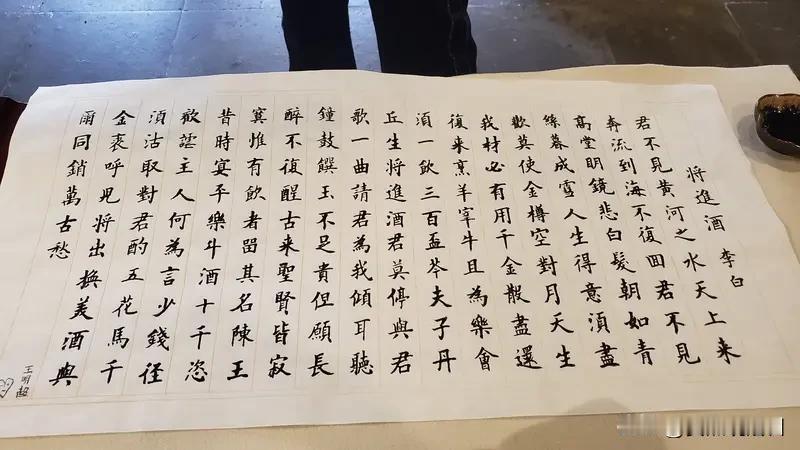 將進酒 李白
君不見黃河之水天上来
奔流到海不復回君不見
高堂明鏡悲白髮朝如青
絲暮成雪人生得意須盡
歡莫使金樽空對月天生
我材必有用千金散盡還
復来烹羊宰牛且為樂會
須一飲三百盃岑夫子丹
丘生將進酒君莫停與君
歌一曲請君為我傾耳聽
鐘鼓饌玉不足貴但願長
醉不復醒古来聖賢皆寂
寞惟有飲者留其名陳王
昔時宴平樂斗酒十千恣
歡謔主人何為言少錢徑
須沽取對君酌五花馬千
金裘呼児將出換美酒與
爾同銷萬古愁
王明超